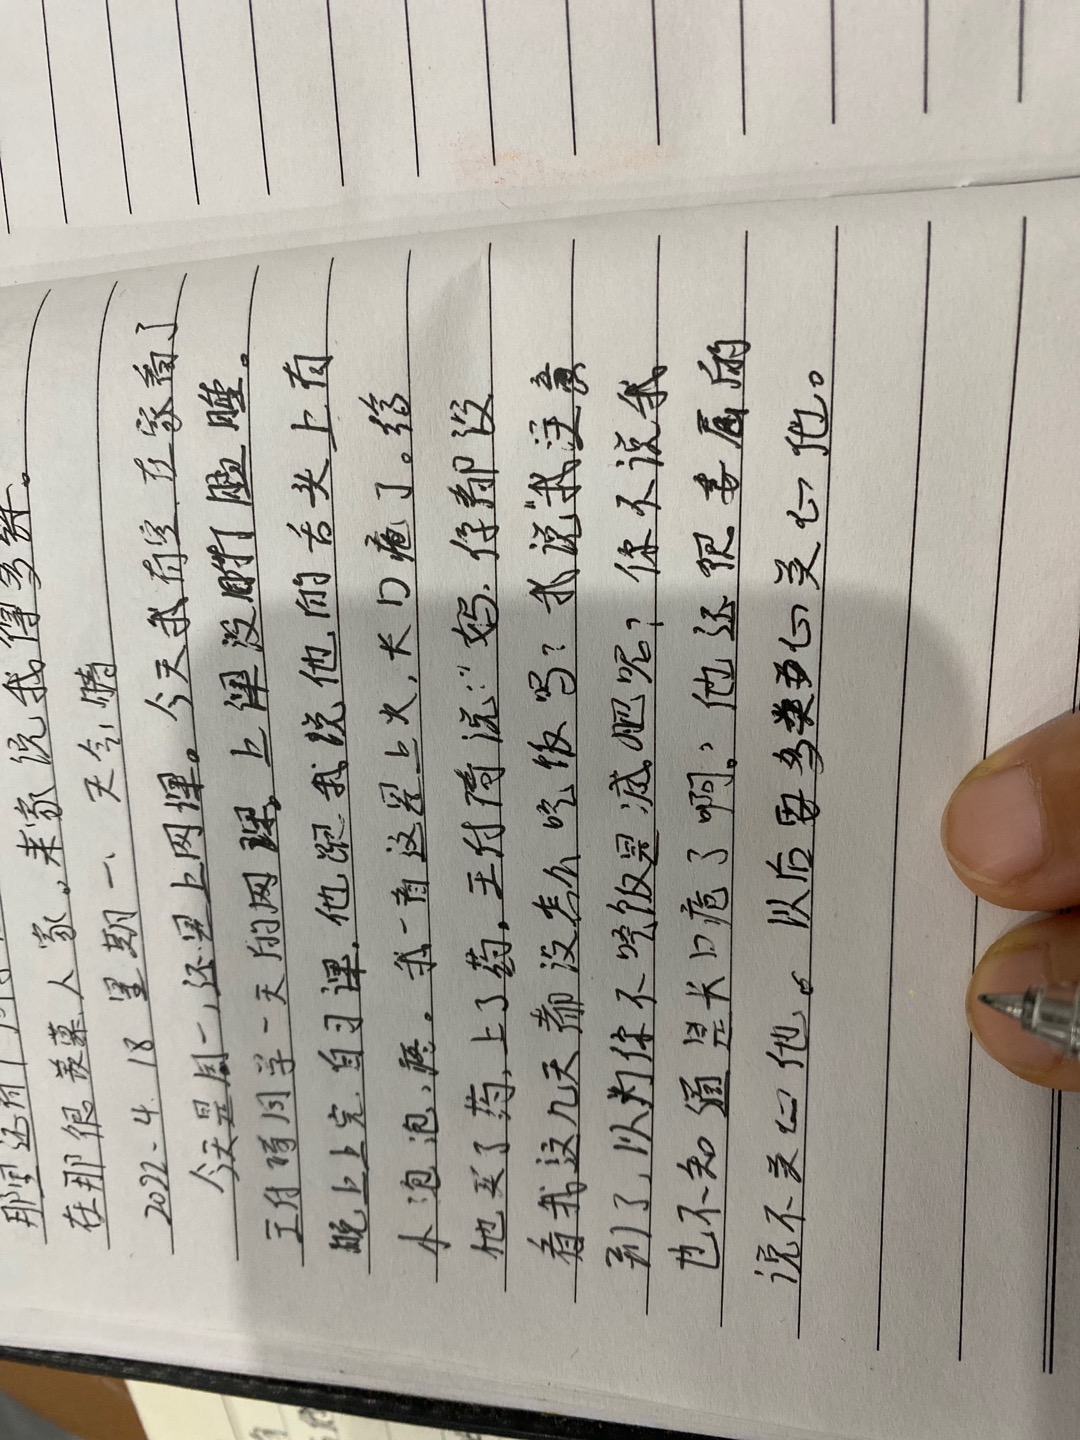 那里还有
在那很羡慕人家。来家说我得多弄。
2022.4.18 星期一、天气:晴
今天是周一,还是上网课。今天我有空在家看了
王付晴同学一天的网课。上课没敢打瞌睡。
晚上上完自习课,他跟我说他的舌头上有
小泡泡,疼。我一看这是上火,长口疮了。给
他买了药,上了药,王付晴说:"妈,你都没
看我这几天都没怎么吃饭吗?我说"我注意
到了,以为你不吃饭是减肥呢?你不说我
也不知道是长口疮了啊。他还很委屈的
说不关心他。以后要多关心关心他。